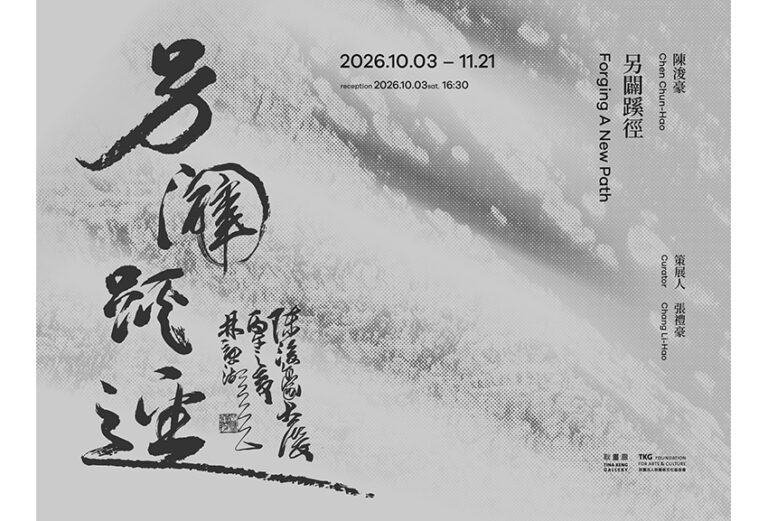 另闢蹊徑
2026.10.03 – 11.21
reception 2026.10.03 sat. 16:30
陳浚豪
Chen Chun-Hao
另闢蹊徑
Forging A New Path
策展人 張禮豪
Curator Chang Li-Hao
耿畫廊
TINA KENG
GALLERY
TKG FOUNDATION
FOR ARTS & CULTURE